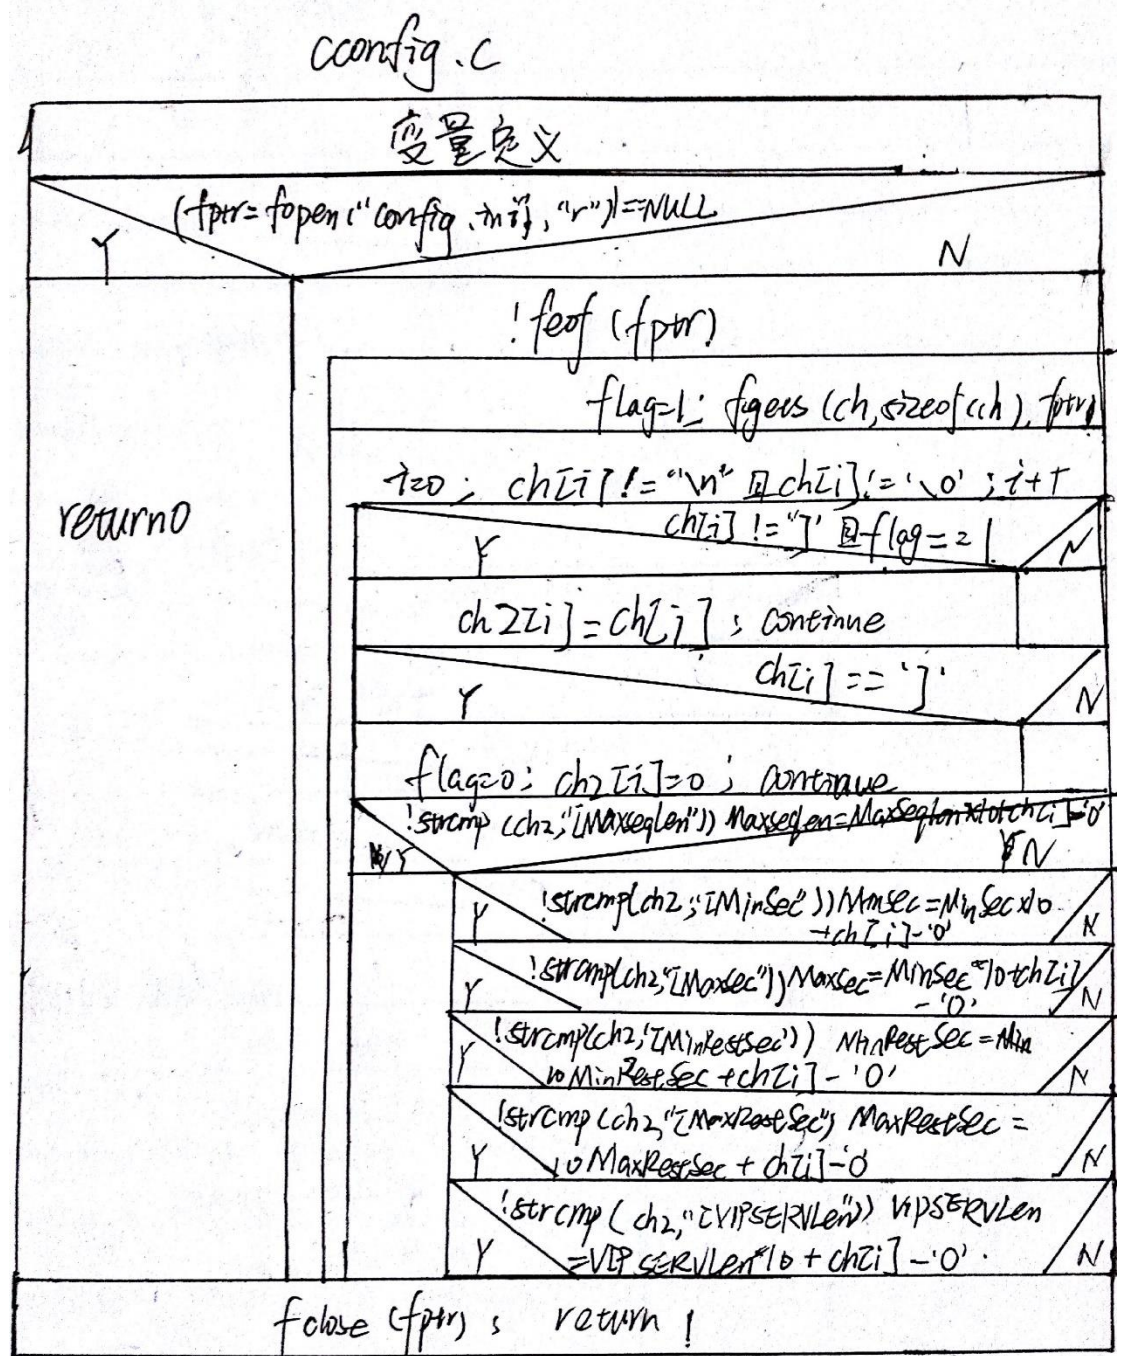 cconfig.c
变量定义
(fptr=fopen("config.ini","r"))==NULL
Y N
!feof(fptr)
flag=1; fgets(ch,sizeof(ch),fptr)
i=0; ch[i]!="\n"且ch[i]!='\0';i++
return0
ch[i]!="]"且flag==1
Y N
ch2[i]=ch[i]; continue
ch[i]==']'
Y N
flag=0; ch2[i]=0; continue
!strcmp(ch2,"[MaxseqLen")) Maxseqlen=MaxSeqLen×10+ch[i]-'0'
Y N
!strcmp(ch2,"[MinSec"))MinSec=MinSec×10
+ch[i]-'0'
Y N
!strcmp(ch2,"[Maxsec"))Maxsec=MinSec*10+ch[i]
-'0'
Y N
!strcmp(ch2,'[MinRestSec')) MinRestSec=Min
10MinRestSec+ch[i]-'0'
Y N
!strcmp(ch2,"[MaxRestSec") MaxRestSec=
10MaxRestSec+ch[i]-'0
Y N
!strcmp(ch2,"[VIPSERVLen")) VIPSERVLen
=VIPSERVLen*10+ch[i]-'0'.
Y N
fclose(fptr); return 1